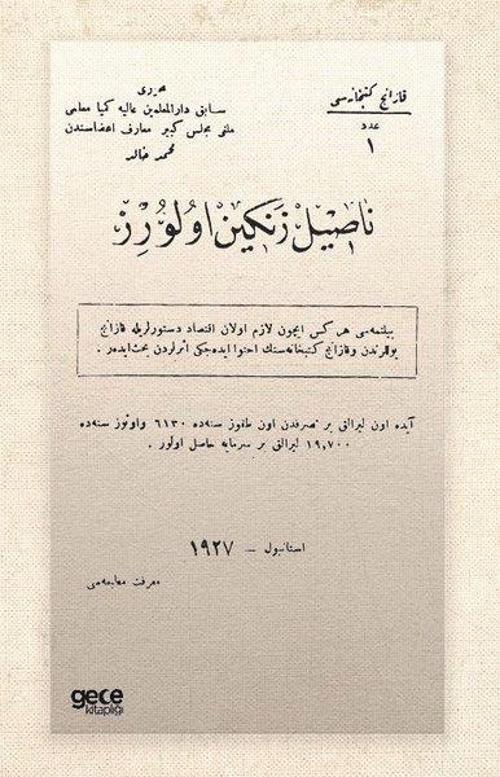 قازانج كتبخانه‌سی
عدد
١
محرری
سابق دارالمعلمین عالیه كیمیا معلمی
ملی مجلس كبیر معارف اعضاسندن
محمد خالد
ناصیل زنكین اولورز
بیلنمه‌سی هر كس ایچون لازم اولان اقتصاد دستورلریله قازانج
یوللرندن وقازانج كتبخانه‌سنك احتوا ایده‌جكی اثرلردن بحث ایدر .
آیده اون لیرالق بر تصرفدن اون طقوز سنه‌ده ٦١٣٠ واوتوز سنه‌ده
١٩,٧٠٠ لیرالق بر سرمایه حاصل اولور .
استانبول – ١٩٢٧
معرفت مطبعه‌سی
gece
kitaplığı